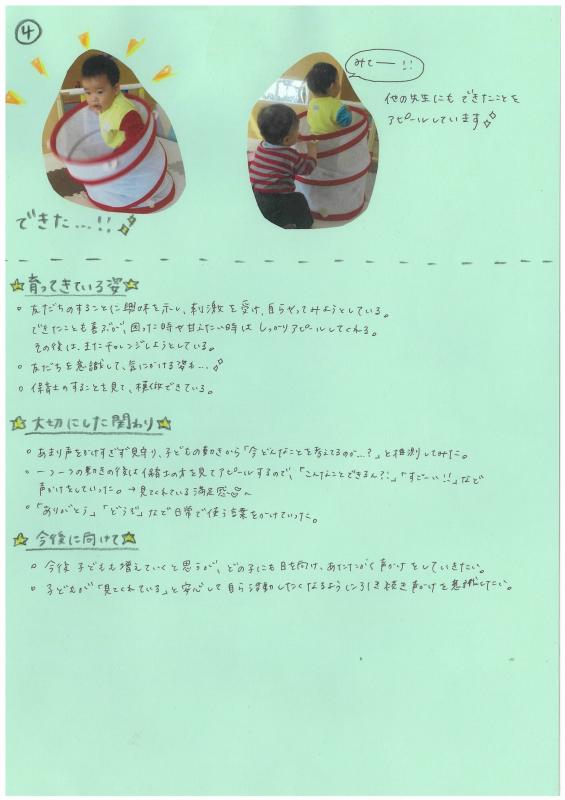 ④
みてー!!
他の先生にも できたことを
アピールしています
できた...!!
育ってきている姿
○ 友だちのすることに興味を示し、刺激を受け、自らやってみようとしている。
できたことも喜ぶが、困った時や甘えたい時は しっかりアピールしてくれる。
その後は、またチャレンジしようとしている。
○ 友だちを意識して、気にかける姿も...
○ 保育士のすることを見て、模倣できている。
大切にした関わり
○ あまり声をかけすぎず見守り、子どもの動きから「今どんなことを考えてるのか...?」と推測してみた。
○ 一つ一つの動きの後は保育士の方を見てアピールするので、「こんなことできるん?!」「すごーい!!」など
声がけをしていった。→見てくれている満足感
○ 「ありがとう」「どうぞ」など日常で使う言葉をかけていった。
今後に向けて
○ 今後 子どもも増えていくと思うが、どの子にも目を向け、あたたかく声がけをしていきたい。
○ 子どもが「見てくれている」と安心して自ら活動したくなるように引き続き声がけを意識したい。